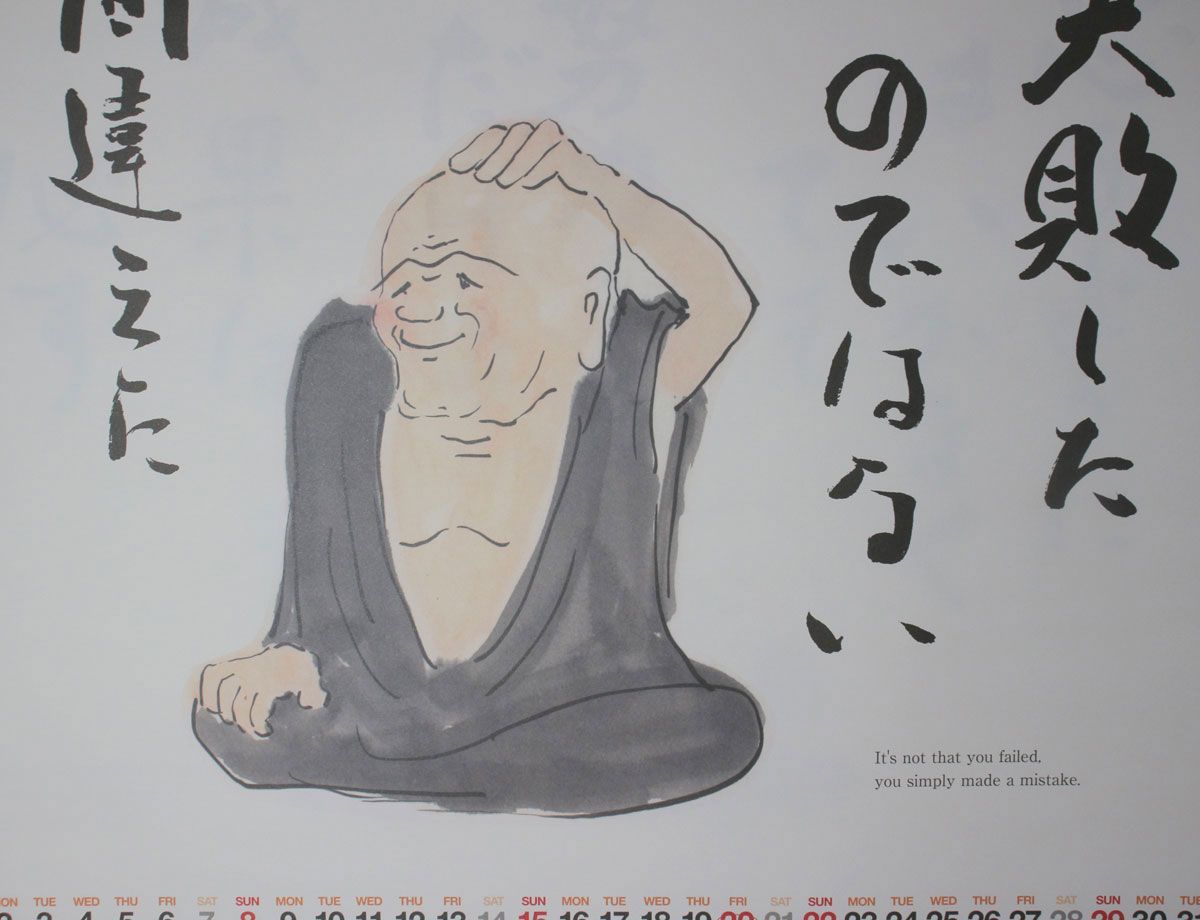 失敗した
のではない
間違えた
It's not that you failed,
you simply made a mistake.
MON TUE WED THU FRI SAT SUN MON TUE WED THU FRI SAT SUN MON TUE WED THU FRI SAT SUN MON TUE WED THU FRI SAT SUN MON TUE
2 3 4 5 6 7 8 9 10 11 12 13 14 15 16 17 18 19 20 21 22 23 24 25 26 27 28 29 30 31